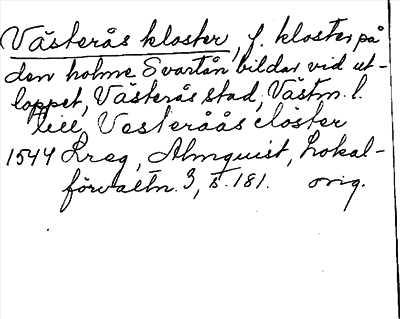 Västerås kloster, f. kloster på
den holme Svartån bildar vid ut-
loppet, Västerås stad, Västm. l.
till Vesteråås closter
1544 Lreg, Almquist, Lokal-
förvaltn. 3, s. 181. orig.